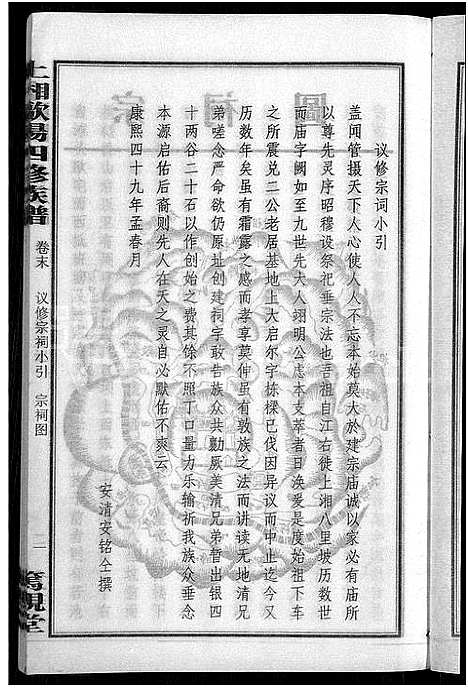 议修宗词小引
盖闻管摄天下人心使人人不忘本始莫大於建宗庙诚以家必有庙所
以尊先灵序昭穆设祭祀垂宗法也吾祖自江右徙上湘八里坡历数世
而庙字阙如至九世先大人翊明公虑本支萃者日涣爰是度始祖下车
之所震兑二公老居基地上大启尔宇栋樑已伐因异议而中止迄今又
历数年矣虽有霜露之感而孝享莫伸虽有敦族之法而讲读无地清兄
弟嗟念严命欲仍原址创建祠宇敢告族众共勷厥美清兄弟暂出银四
十两谷二十石以作创始之费其馀不照丁口量力乐输祈我族众垂念
本源启佑后裔则先人在天之灵自必默佑不爽云
康熙四十九年孟春月
安清安铭仝撰
上湘欧阳四修族谱
卷末 议修宗祠小引 宗祠图
一
笃亲堂
宗祠圖